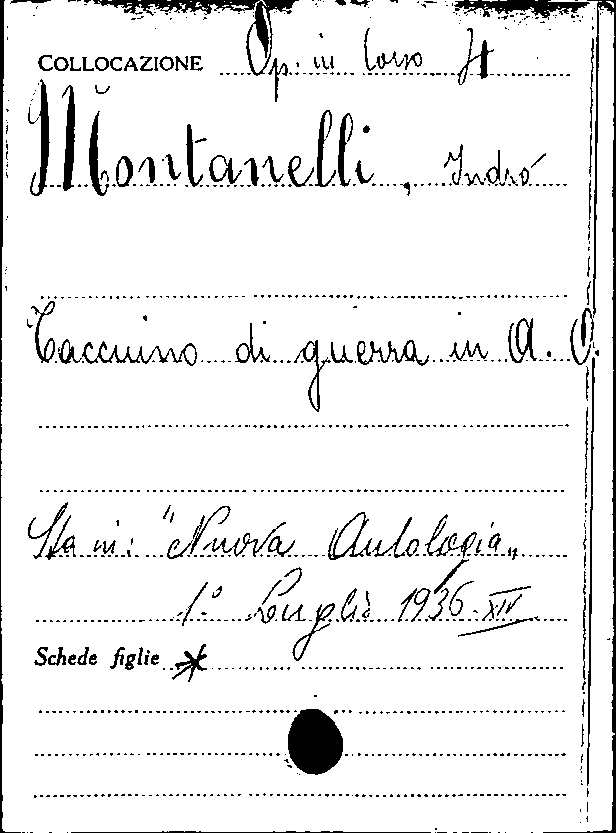 COLLOCAZIONE Op. in Corso It
Montanelli, Indro
Taccuino di guerra in A. O.
Sta in: "Nuova Antologia„
1.° Luglio 1936-XIV
Schede figlie *